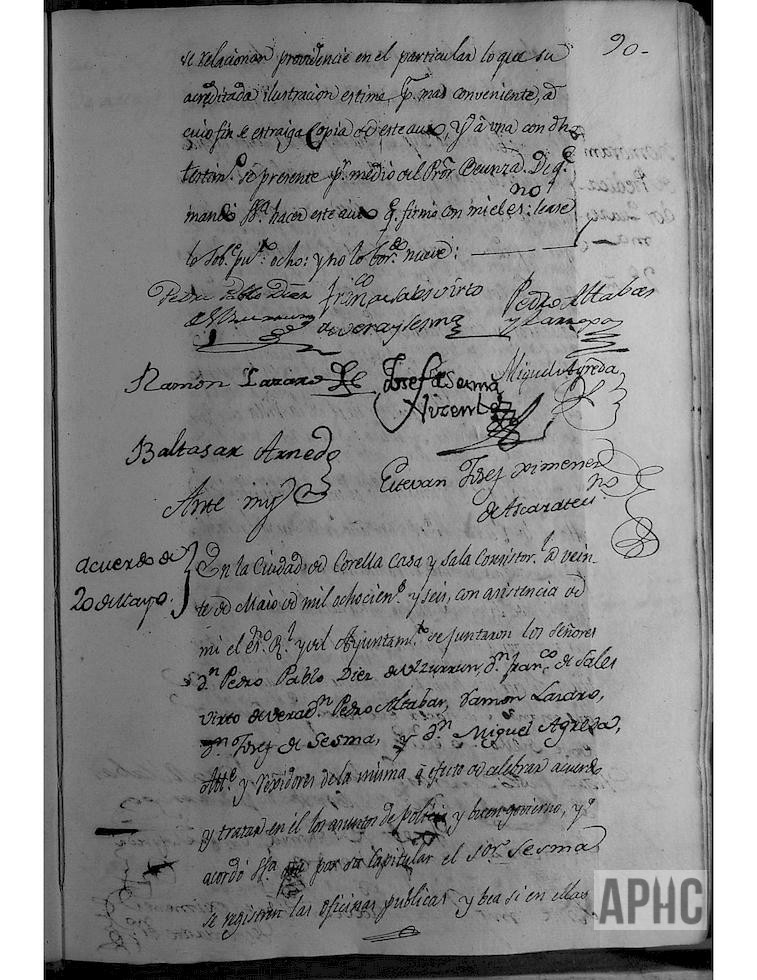 90-
se relacionan providencie en el particular lo que su
acreditada ilustracion estime pr. mas conveniente, a
cuio fin se estraiga Copia de este auto, y a una con dho
testimo. se presente pr. medio del Pror. Beunza. Di q.
no
mando Sa. hacer este auto q. firmo con mi el es: lease
lo sobe. pto. ocho: y no lo borrdo. nueve:
Pedro Pablo Diez franco de Sales Virto Pedro Altabas
de Ulzurrun de Vera y Sesma y Larropa
Ramon Lazaro Josef de Sesma Miguel Agreda
Vicente
Baltasar Arnedo
Estevan Josef Ximenez
Ante my no
de Ascarateu
acuerdo de
20 de Mayo.
En la Ciudad de Corella Casa y Sala Consistorl. a vein-
te de Maio de mil ochocienos. y seis, con asistencia de
mi el esno. Rl. y del Ayuntamto. se juntaron los señores
Dn. Pedro Pablo Diez de Ulzurrun, Dn. franco. de Sales
Virto de Vera Dn. Pedro Altabas, Ramon Lazaro,
Dn. Josef de Sesma, y Dn. Miguel Agreda,
Alle. y rexidores de la misma a efecto de celebrar acuerdo
y tratar en él los asuntos de policia y buen govierno, y
acordó Sa. que por su Capitular el sor. Sesma
se registren las oficinas publicas y bea si en ellas
APHC